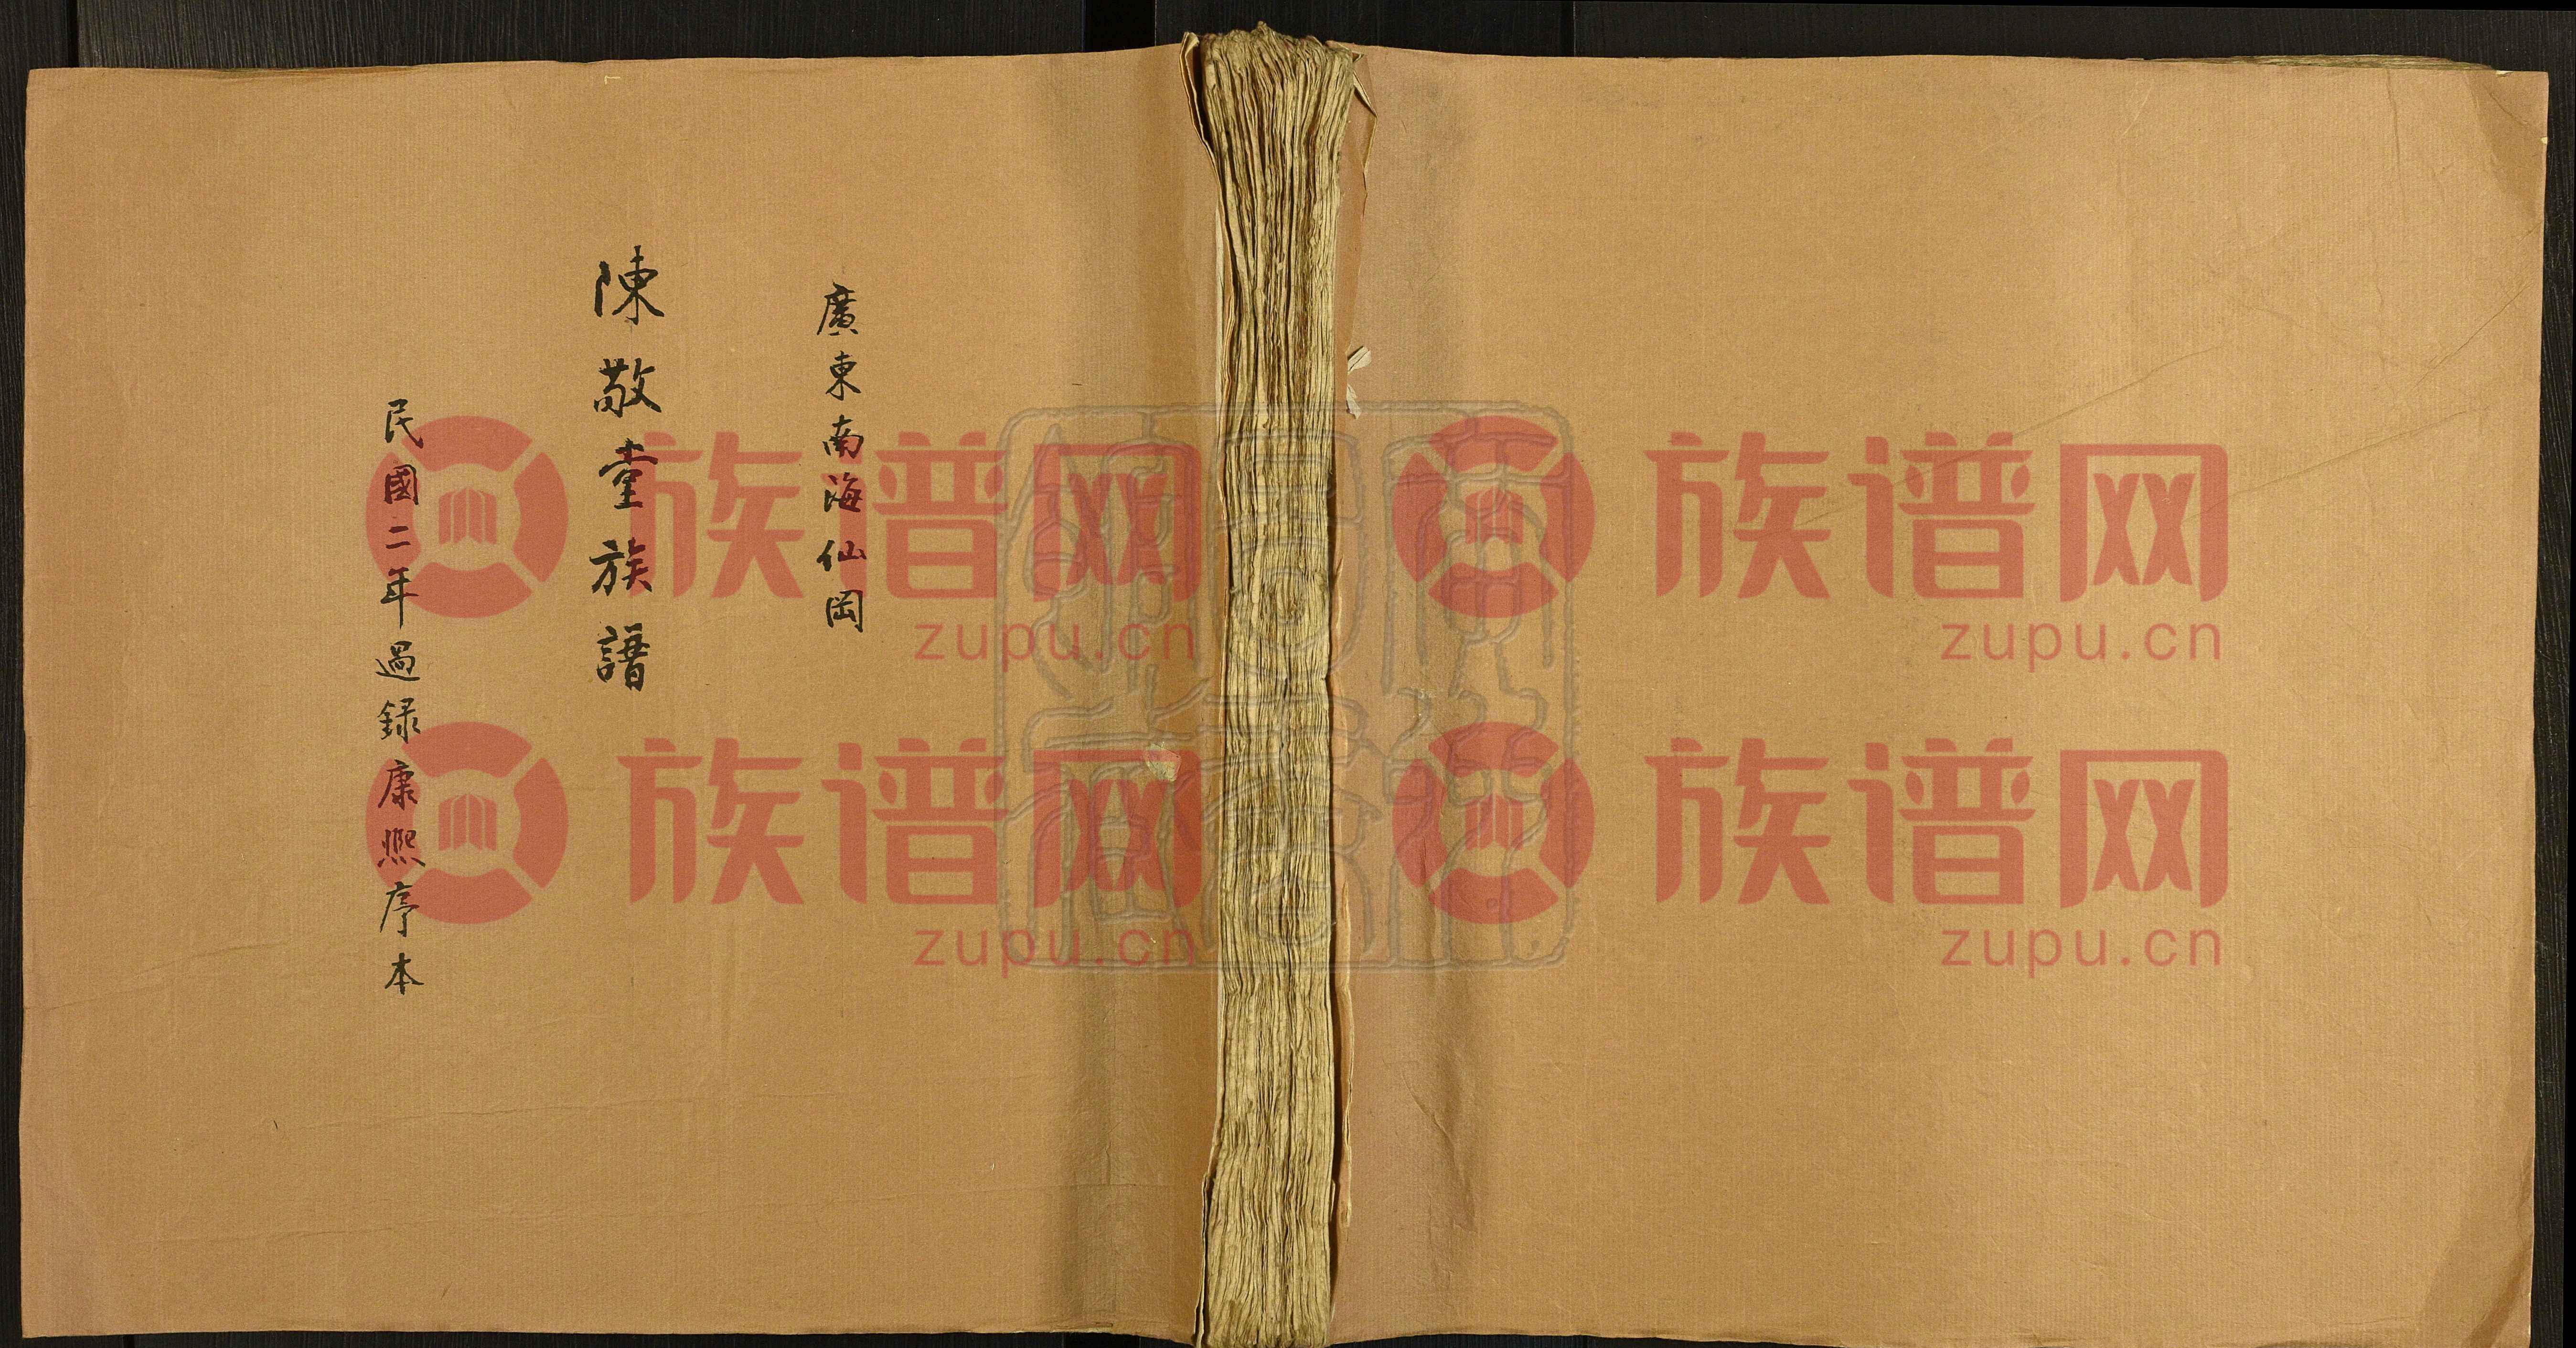 廣東南海仙岡
陳敬堂族譜
民國二年過録康熙序本
族谱网
zupu.cn
族谱网
zupu.cn
族谱网
zupu.cn
族谱网
zupu.cn